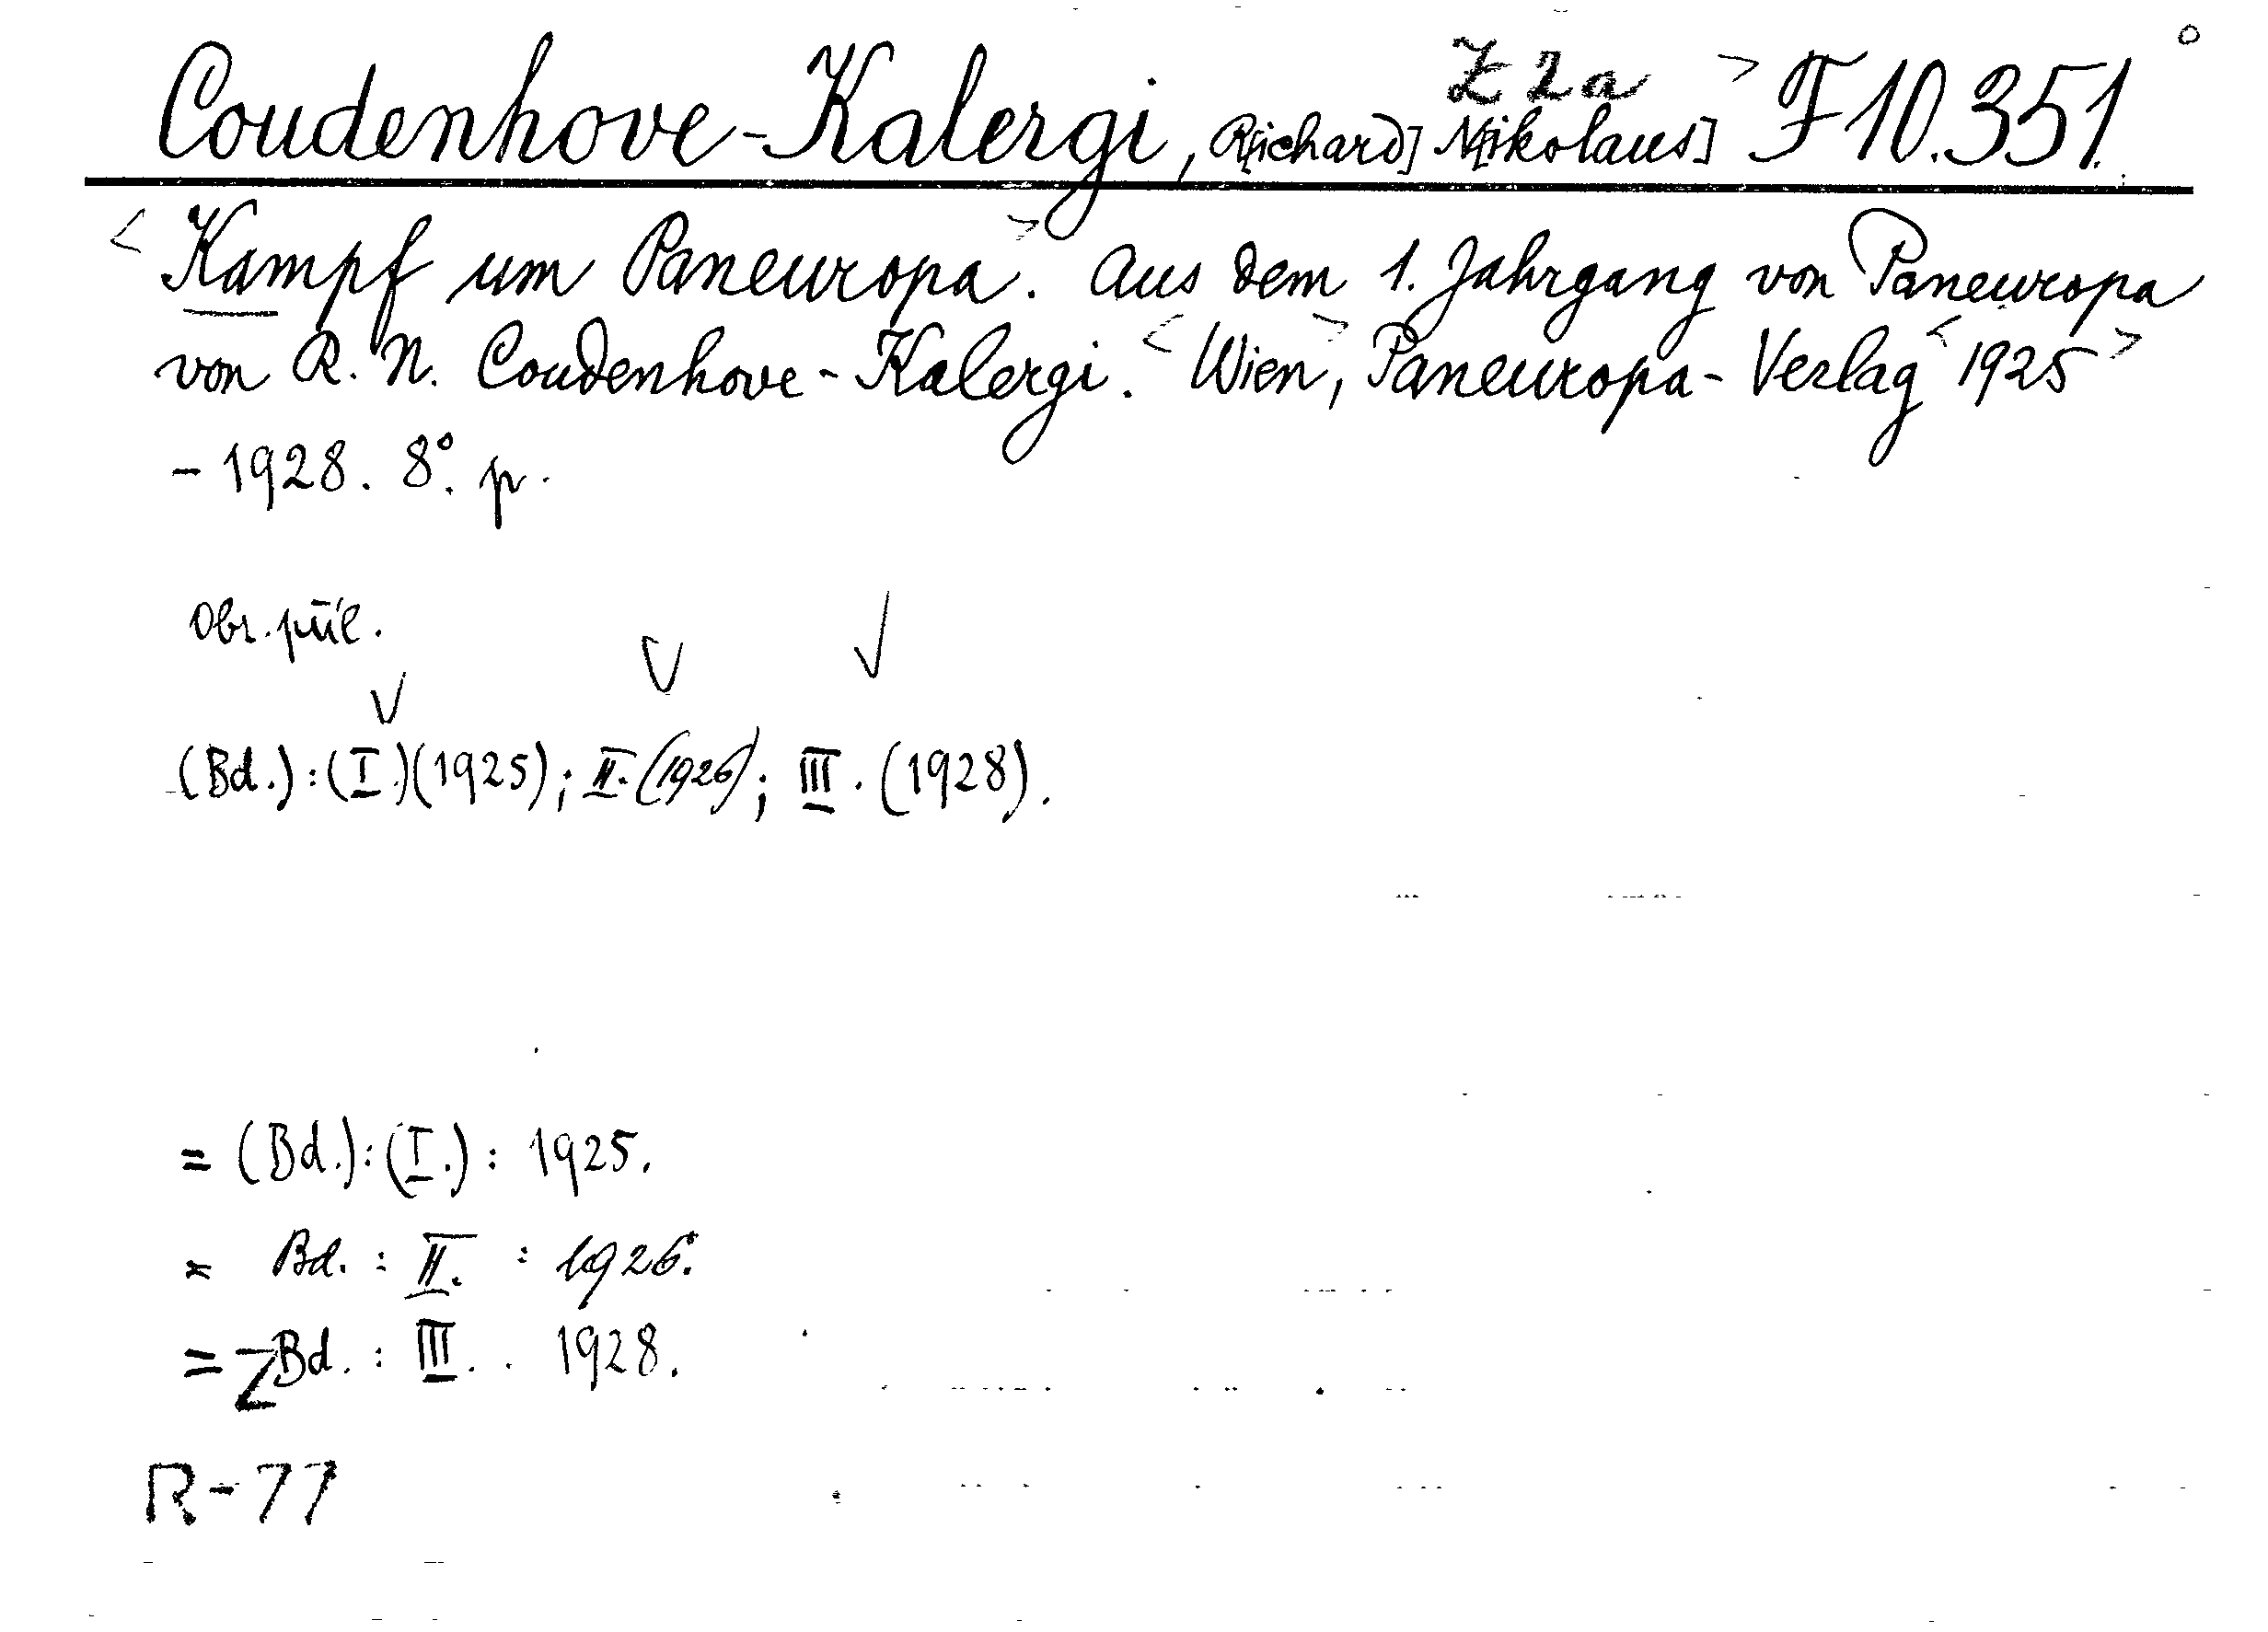 Z 2a
Coudenhove-Kalergi, R[ichard] N[ikolaus] > F 10.351.
<Kampf um Paneuropa>. Aus dem 1. Jahrgang von Paneuropa
von R. N. Coudenhove-Kalergi. <Wien>, Paneuropa-Verlag <1925>
- 1928. 8°. p.
Obr. půl.
(Bd.): (I.)(1925); II. (1926); III. (1928).
= (Bd.): (I.) : 1925.
= Bd. : II. : 1926.
= Bd. : III. . 1928.
R-77